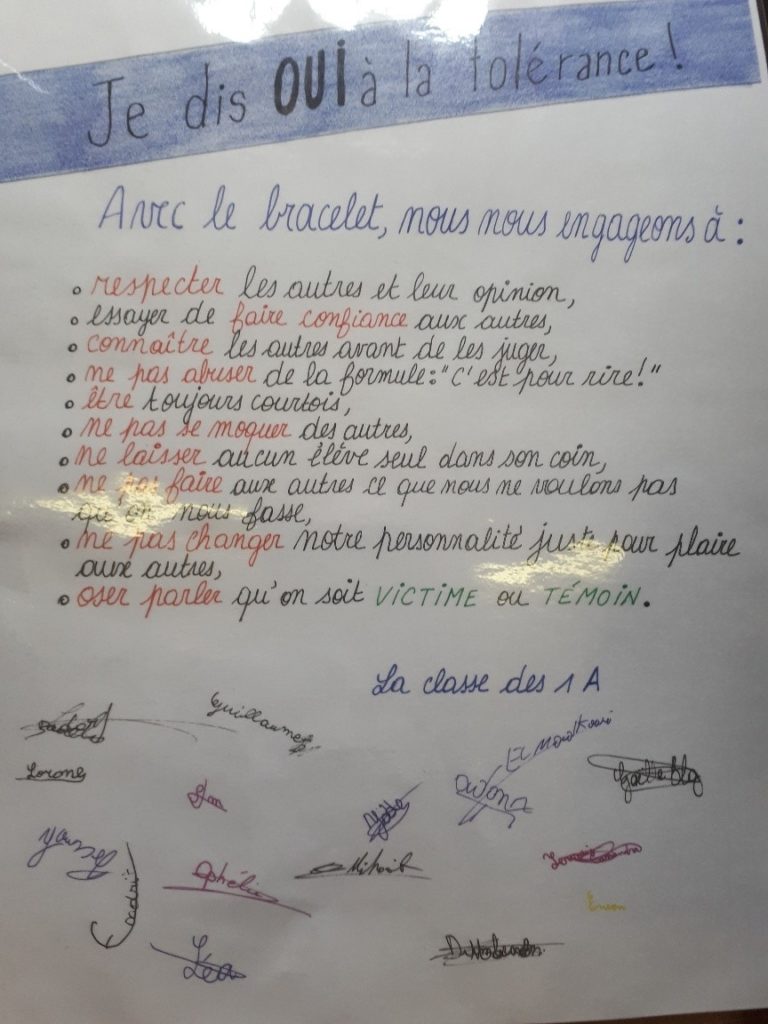 Je dis OUI à la tolérance !
Avec le bracelet, nous nous engageons à :
• respecter les autres et leur opinion,
• essayer de faire confiance aux autres,
• connaître les autres avant de les juger,
• ne pas abuser de la formule : "C'est pour rire !"
• être toujours courtois,
• ne pas se moquer des autres,
• ne laisser aucun élève seul dans son coin,
• ne pas faire aux autres ce que nous ne voulons pas
qu'on nous fasse,
• ne pas changer notre personnalité juste pour plaire
aux autres,
• oser parler qu'on soit VICTIME ou TÉMOIN.
La classe des 1 A
Guillaume
Youssef
Ophélie
Léa